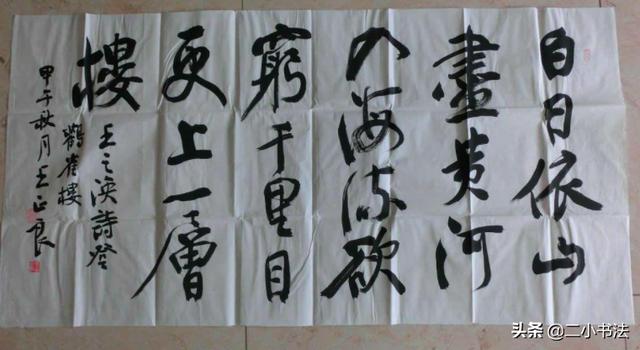 白日依山
盡黄河
入海流欲
窮千里目
更上一層
樓
王之渙詩登
鸛雀樓
甲午秋月王正良
头条 @二小书法